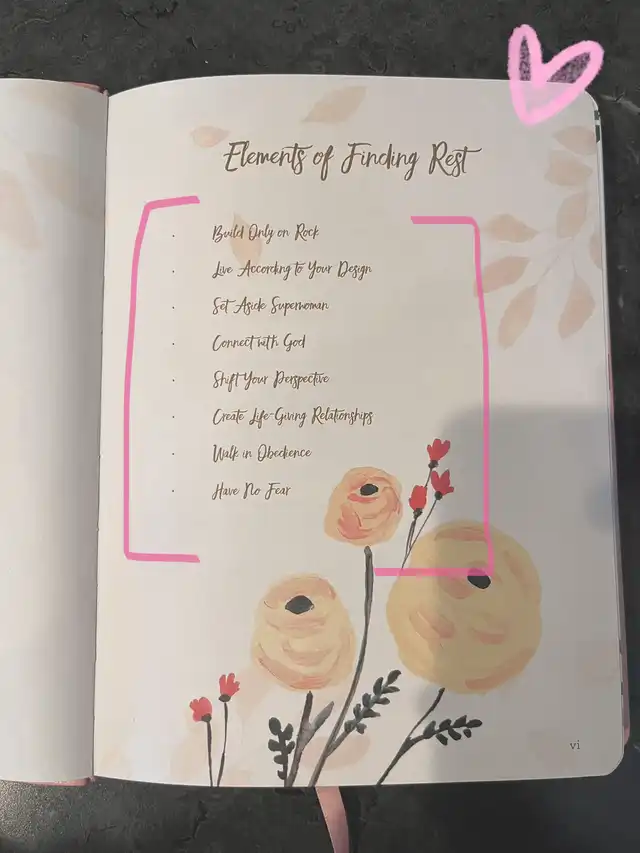 Elements of Finding Rest
· Build Only on Rock
· Live According to Your Design
· Set Aside Superwoman
· Connect with God
· Shift Your Perspective
· Create Life-Giving Relationships
· Walk in Obedience
· Have No Fear
vi